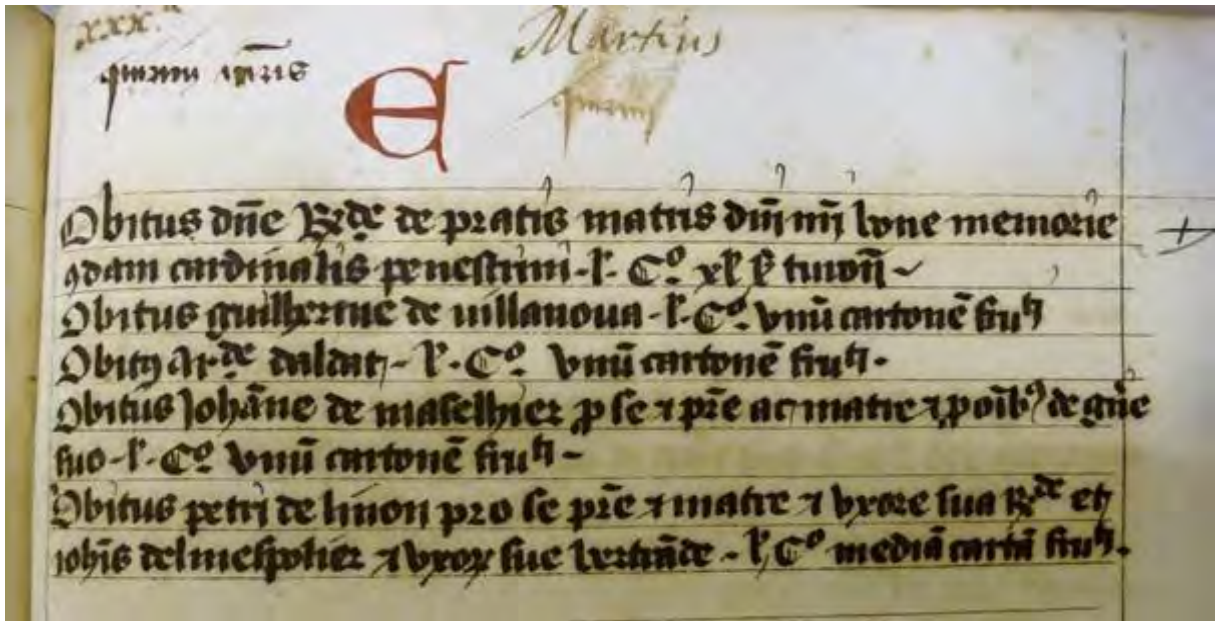 xxx.a
Martius
E
Obitus dn̄e B̄r̄de de pratis matris dn̄i nr̄i bone memorie
qdam cardinalis penestrini - l. Co. xl. turon̄
Obitus guilherme de uillanoua - l. Co. vnū cartonē fruti
Obitus Arde daldat - l. Co. vnū cartonē fruti.
Obitus Johāne de maselhier p se ⁊ pr̄e ac matre ⁊ p oib9 de gn̄e
suo - l. Co. vnū cartonē fruti
Obitus petri de limon pro se pr̄e ⁊ matre ⁊ vxore sua B̄r̄de et
joh̄is del mespolier ⁊ vxor sue bertrāde - l. Co mediā cartā fruti.